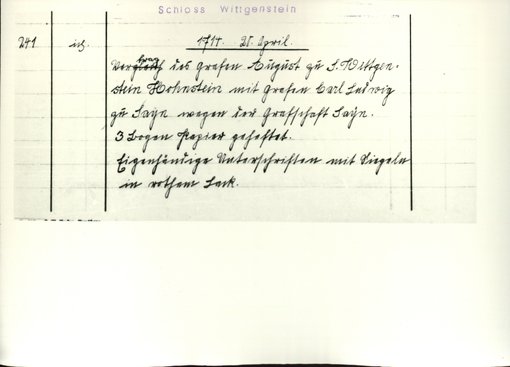 Schloss Wittgenstein
241 1714. 21. April.
Vertrag des Grafen August zu S. Wittgen-
stein Hohnstein mit Grafen Carl Ludwig
zu Sayn wegen der Grafschaft Sayn.
3 Bogen Papier geheftet.
Eigenhändige Unterschriften mit Siegeln
in rothem Lack.